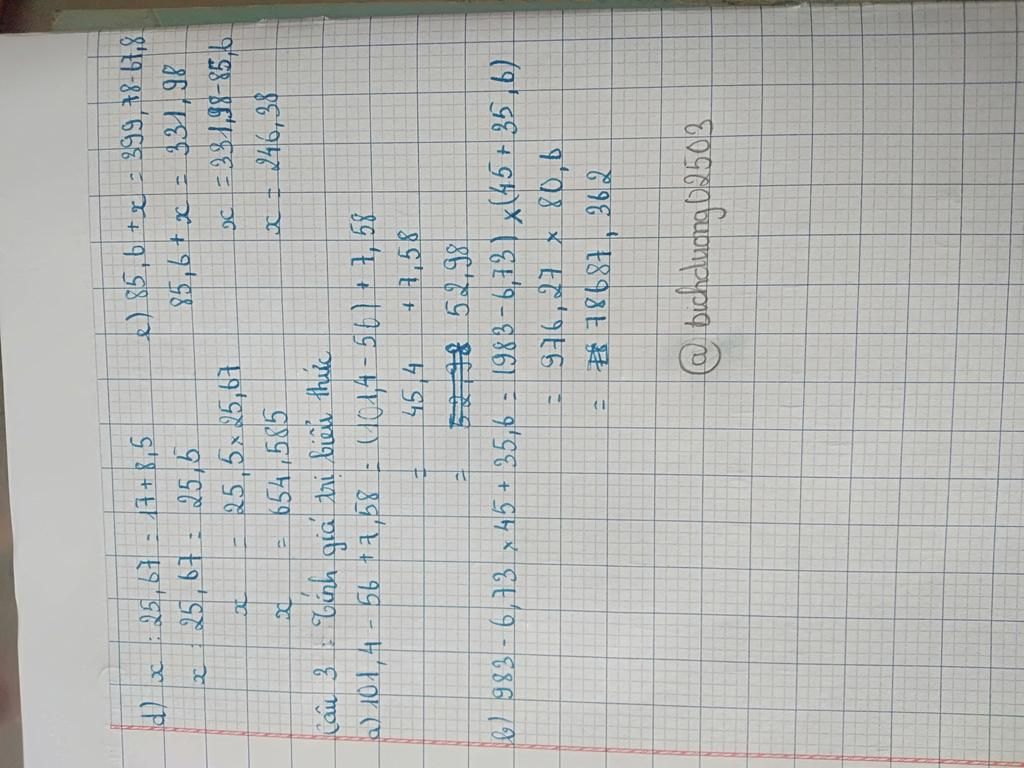 d) x : 25,67 = 17 + 8,5
x : 25,67 = 25,5
x = 25,5 x 25,67
x = 654,585
e) 85,6 + x = 399,78 - 67,8
85,6 + x = 331,98
x = 331,98 - 85,6
x = 246,38
Câu 3 : Tính giá trị biểu thức
a) 101,4 - 56 + 7,58 = (101,4 - 56) + 7,58
= 45,4 + 7,58
= 52,98
b) 983 - 6,73 x 45 + 35,6 = (983 - 6,73) x (45 + 35,6)
= 976,27 x 80,6
= 78687,362
@bichduong02503